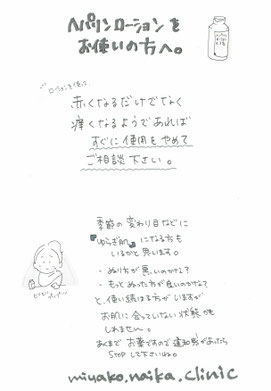 ヘパリンローションを
お使いの方へ。
ローションを使って
赤くなるだけでなく
痒くなるようであれば
すぐに使用をやめて
ご相談下さい。
季節の変わり目などに
『ゆらぎ肌』になる方も
いるかと思います。
・ぬり方が悪いのかな?
・もっとぬった方が良いのかな?
と、使い続ける方がいますが
お肌に合っていない状態かも
しれません。
あくまでお薬ですので違和感があったら
STOPして下さいね。
miyako.naika.clinic